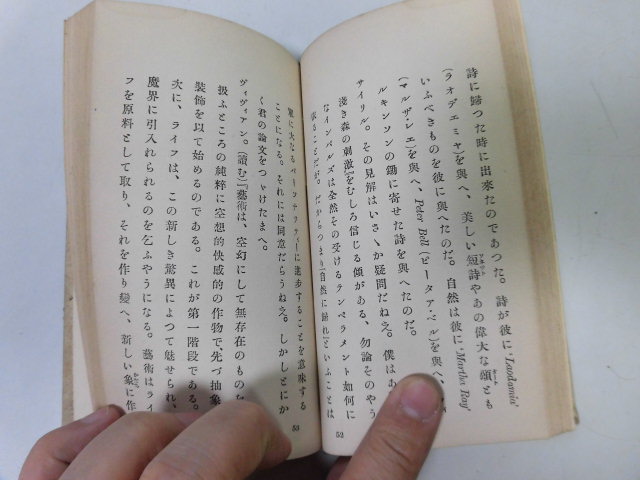 詩に歸つた時に出來たのであつた。詩が彼に 'Laodamia'
(ラオデエミヤ)を與へ、美しい短詩やあの偉大な頌とも
いふべきものを彼に與へたのだ。自然は彼に 'Martha Ray'
(マルザ・レエ)を與へ、Peter Bell (ピータア・ベル)を與へ、
ルキンソンの鋤に寄せた詩を與へたのだ。
サイリル。その見解はいさゝか疑問だねえ。僕はあ
淺き森の刺激』をむしろ信じる傾がある、勿論そのやう
なインパルズは全然その受けるテンペラメント如何に
據ることだが。だからつまり『自然に歸れ』といふことは
52
單に大なるパーソナリティーに進步することを意味する
ことになる。それには同意だらうねえ。しかしとにか
く君の論文をつゞけたまへ。
ヴィヴィアン。(讀む)『藝術は、空幻にして無存在のものを
扱ふところの純粹に空想的快感的の作物で、先づ抽象
裝飾を以て始めるのである。これが第一階段である。
次に、ライフは、この新しき驚異によつて魅せられ、
魔界に引入れられるのを乞ふやうになる。藝術はライ
フを原料として取り、それを作り變へ、新しい象に作
53